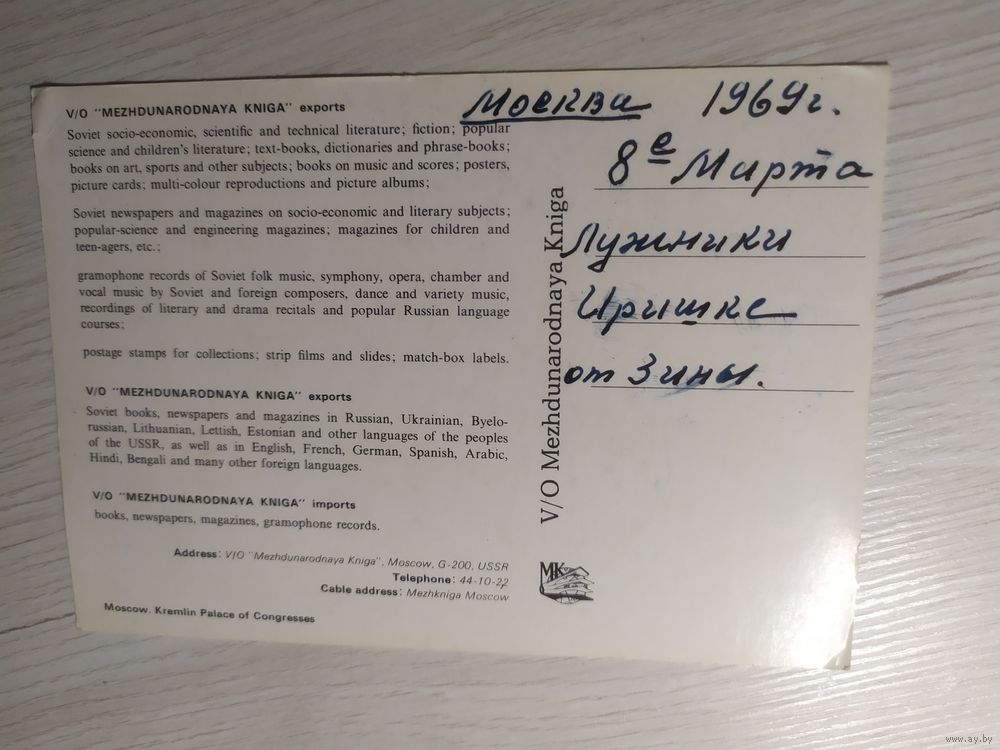 V/O "MEZHDUNARODNAYA KNIGA" exports
Soviet socio-economic, scientific and technical literature; fiction; popular
science and children's literature; text-books, dictionaries and phrase-books;
books on art, sports and other subjects; books on music and scores; posters,
picture cards; multi-colour reproductions and picture albums;
Soviet newspapers and magazines on socio-economic and literary subjects;
popular-science and engineering magazines; magazines for children and
teen-agers, etc.;
gramophone records of Soviet folk music, symphony, opera, chamber and
vocal music by Soviet and foreign composers, dance and variety music,
recordings of literary and drama recitals and popular Russian language
courses;
postage stamps for collections; strip films and slides; match-box labels.
V/O "MEZHDUNARODNAYA KNIGA" exports
Soviet books, newspapers and magazines in Russian, Ukrainian, Byelo-
russian, Lithuanian, Lettish, Estonian and other languages of the peoples
of the USSR, as well as in English, French, German, Spanish, Arabic,
Hindi, Bengali and many other foreign languages.
V/O "MEZHDUNARODNAYA KNIGA" imports
books, newspapers, magazines, gramophone records.
Address: V/O "Mezhdunarodnaya Kniga", Moscow, G-200, USSR
Telephone: 44-10-22
Cable address: Mezhkniga Moscow
Moscow. Kremlin Palace of Congresses
V/O Mezhdunarodnaya Kniga
МК
Москва 1969г.
8е Марта
Лужники
Иришке
от Зины.
www.ay.by